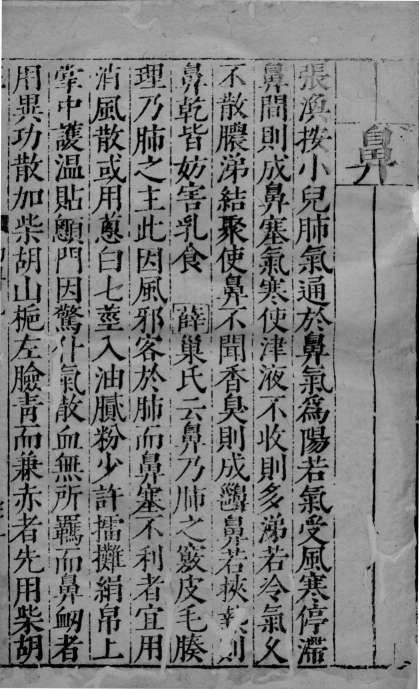 鼻
張渙按小兒肺氣通於鼻氣爲陽若氣受風寒停滯
鼻間則成鼻塞氣寒使津液不收則多涕若冷氣久
不散膿涕結聚使鼻不聞香臭則成齆鼻若挾熱則
鼻乾皆妨害乳食 薛 巢氏云鼻乃肺之竅皮毛腠
理乃肺之主此因風邪客於肺而鼻塞不利者宜用
消風散或用蔥白七莖入油膩粉少許擂攤絹帛上
掌中護溫貼顖門因驚仆氣散血無所羈而鼻衂者
用異功散加柴胡山梔左臉青而兼赤者先用柴胡